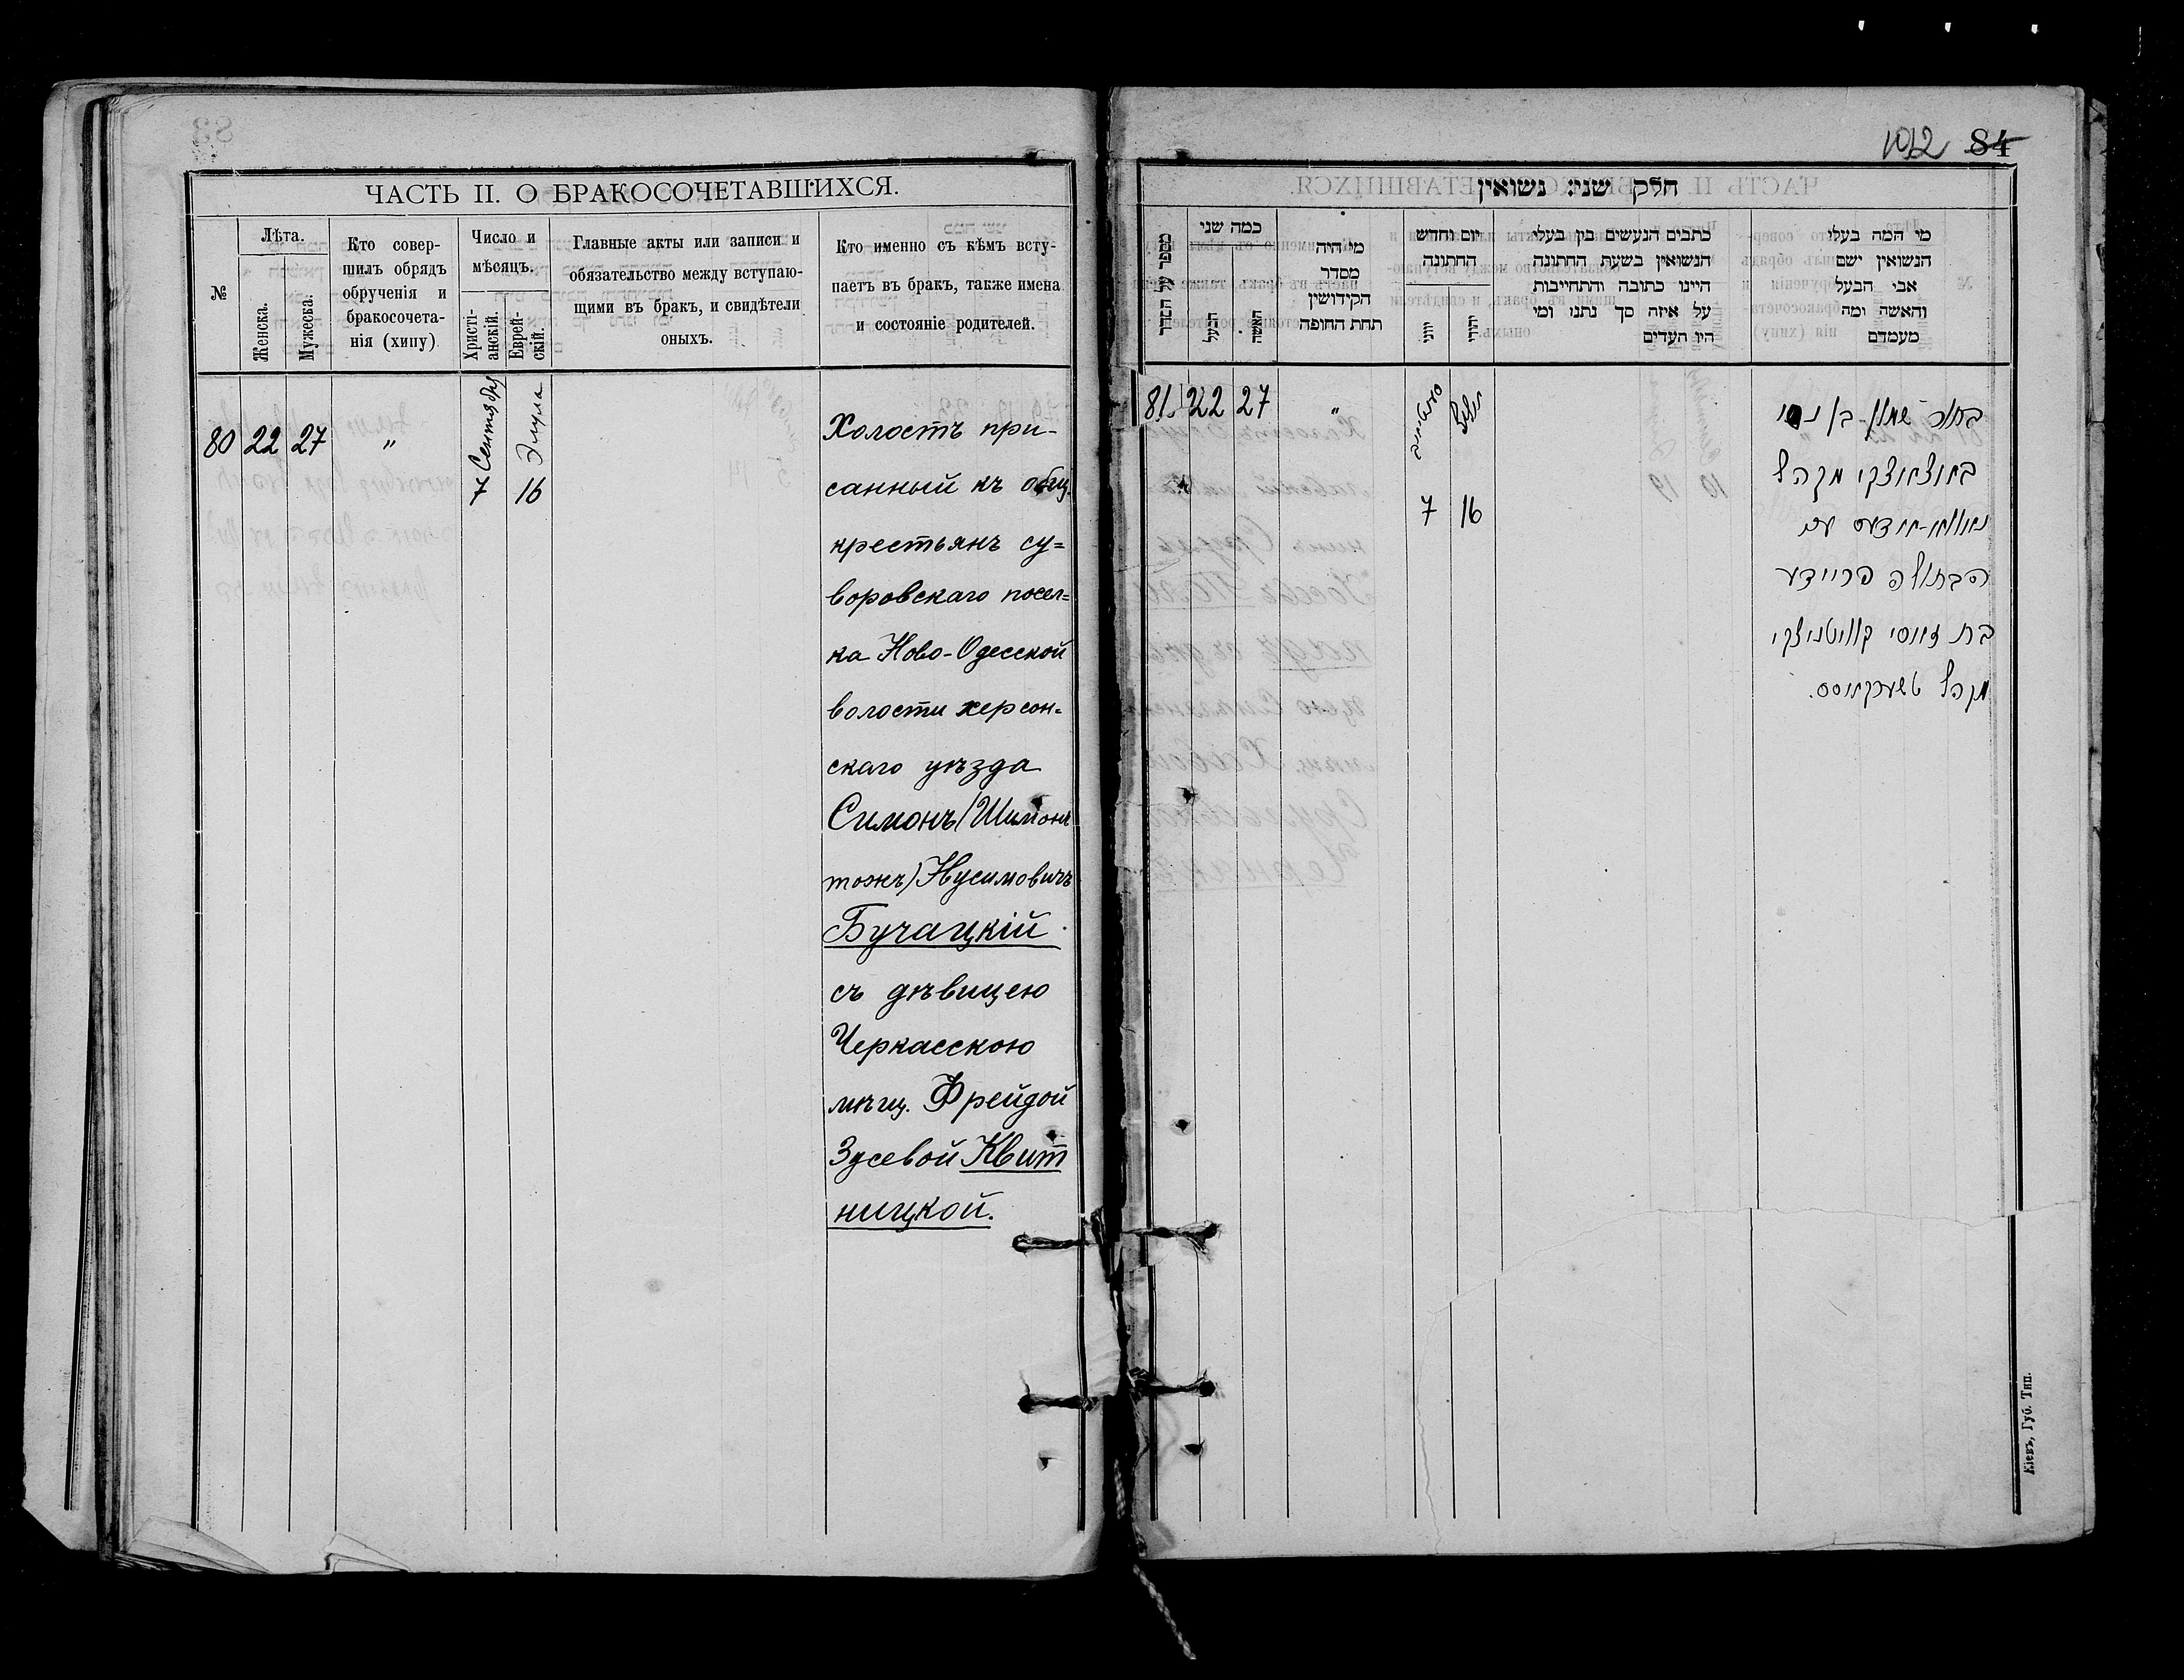 ЧАСТЬ II. О БРАКОСОЧЕТАВШИХСЯ.
№
Лѣта.
Женска.
Мужеска.
Кто совер-
шилъ обрядъ
обрученія и
бракосочета-
нія (хипу)
Число и
мѣсяцъ.
Христі-
анскій.
Еврей-
скій.
Главные акты или записи и
обязательство между вступаю-
щими въ бракъ, и свидѣтели
оныхъ.
Кто именно съ кѣмъ всту-
паетъ въ бракъ, также имена
и состояніе родителей.
80 22 27 „
Сентября
7
Элула
16
Холостъ при-
санный къ общ.
крестьянъ су=
воровскаго посел=
ка Ново-Одесской
волости херсон=
скаго уѣзда
Симонъ (Шимонъ
тожъ) Нусимовичъ
Бучацкій
съ дѣвицею
Черкасскою
мѣщ. Фрейдой
Зусевой Квит
ницкой.
1012 84
חלק שני: נשואין
מספר על הסדר
כמה שני
הבעל
האשה
מי היה
מסדר
הקידושין
תחת החופה
יום וחדש
החתונה
יוני
יהודי
כתבים הנעשים בין בעלי
הנשואין בשעת החתונה
היינו כתובה והתחייבות
על איזה סך נתנו ומי
היו העדים
מי המה בעלי
הנשואין ושם
אבי הבעל
והאשה ומה
מעמדם
81. 22 27 „
7
אלול
16
בחור שמעון בן
מקהל
עם
הבתולה פריידע
בת זוסי קוויטניצקי
מקהל טשערקאסס.
Кіевъ, Губ. Тип.